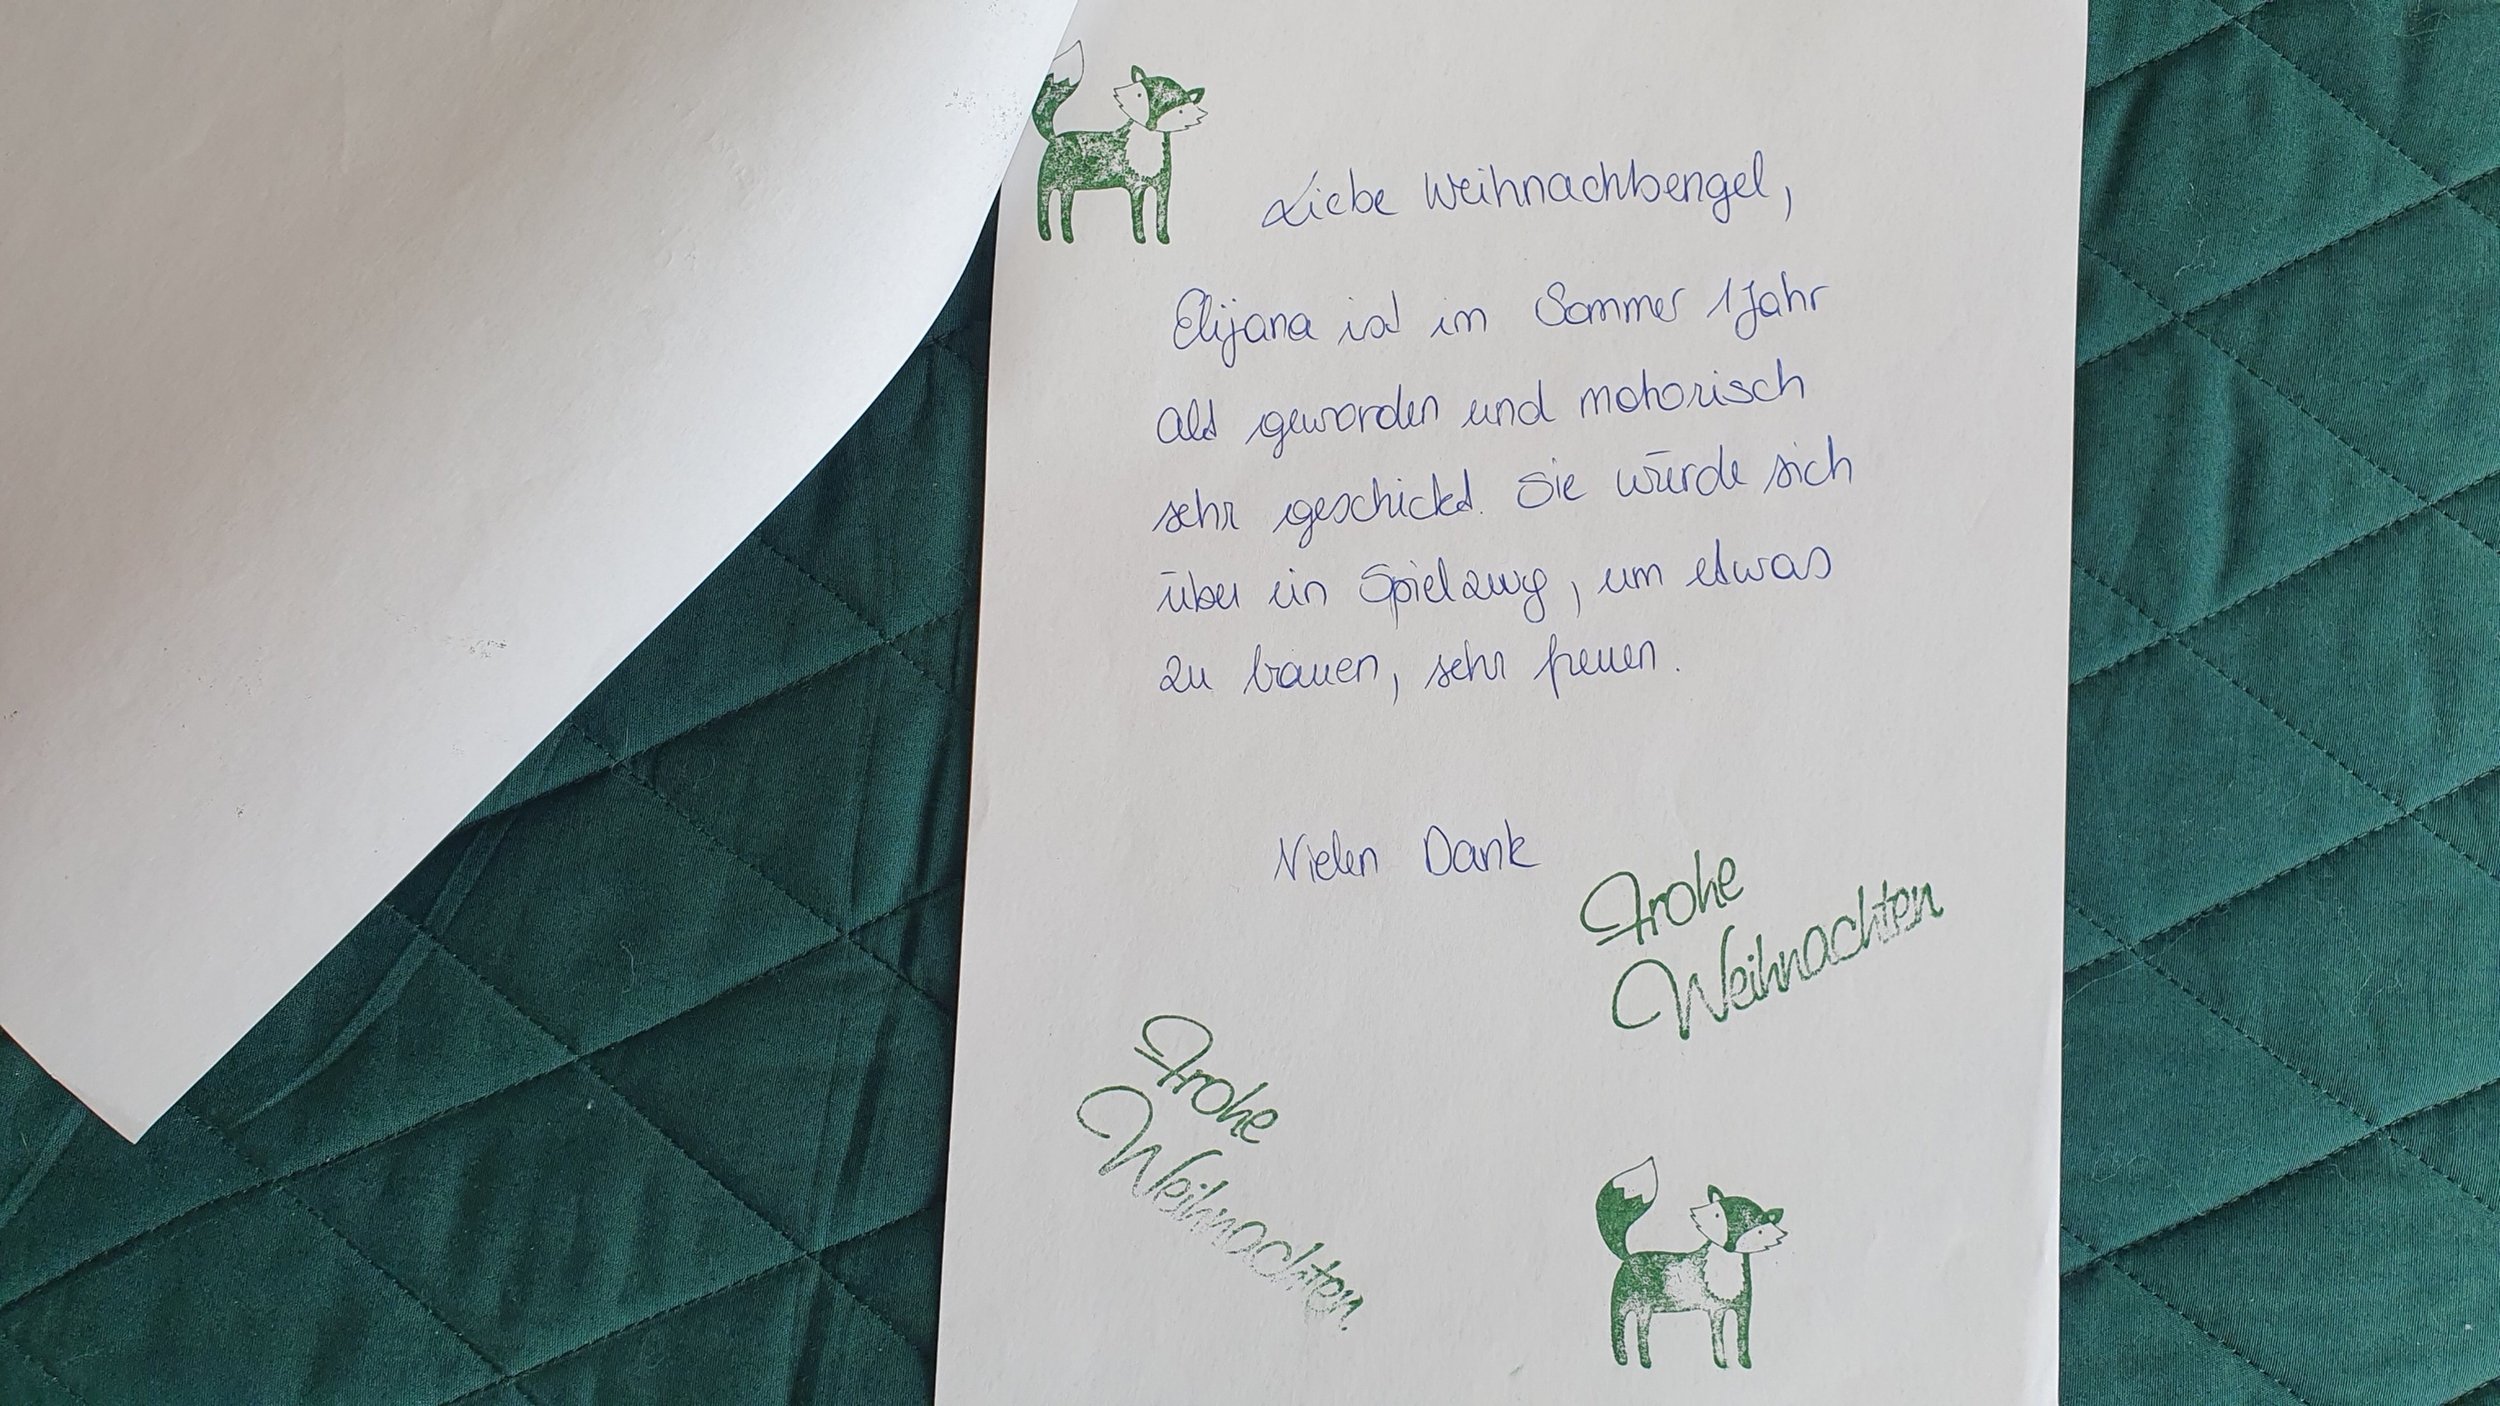 Liebe Weihnachtsengel,
Elijana ist im Sommer 1 Jahr
alt geworden und motorisch
sehr geschickt. Sie würde sich
über ein Spielzeug, um etwas
zu bauen, sehr freuen.
Vielen Dank
Frohe
Weihnachten
Frohe
Weihnachten